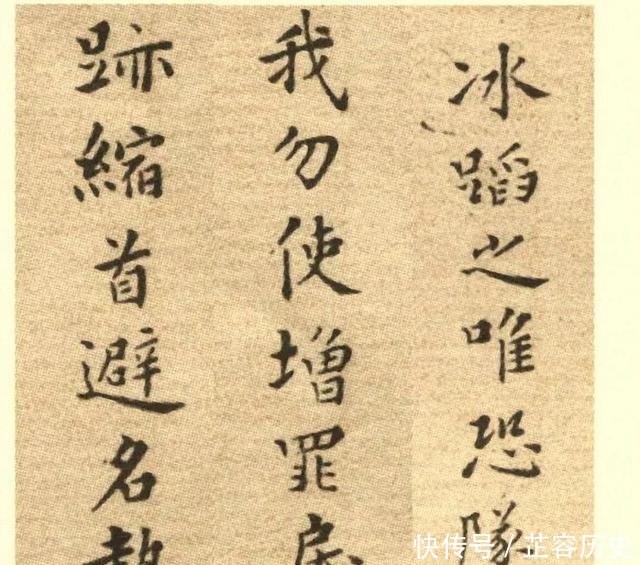 冰蹈之唯恐隊
我勿使增罪戾
跡縮首避名
快传号 / 芷容历史